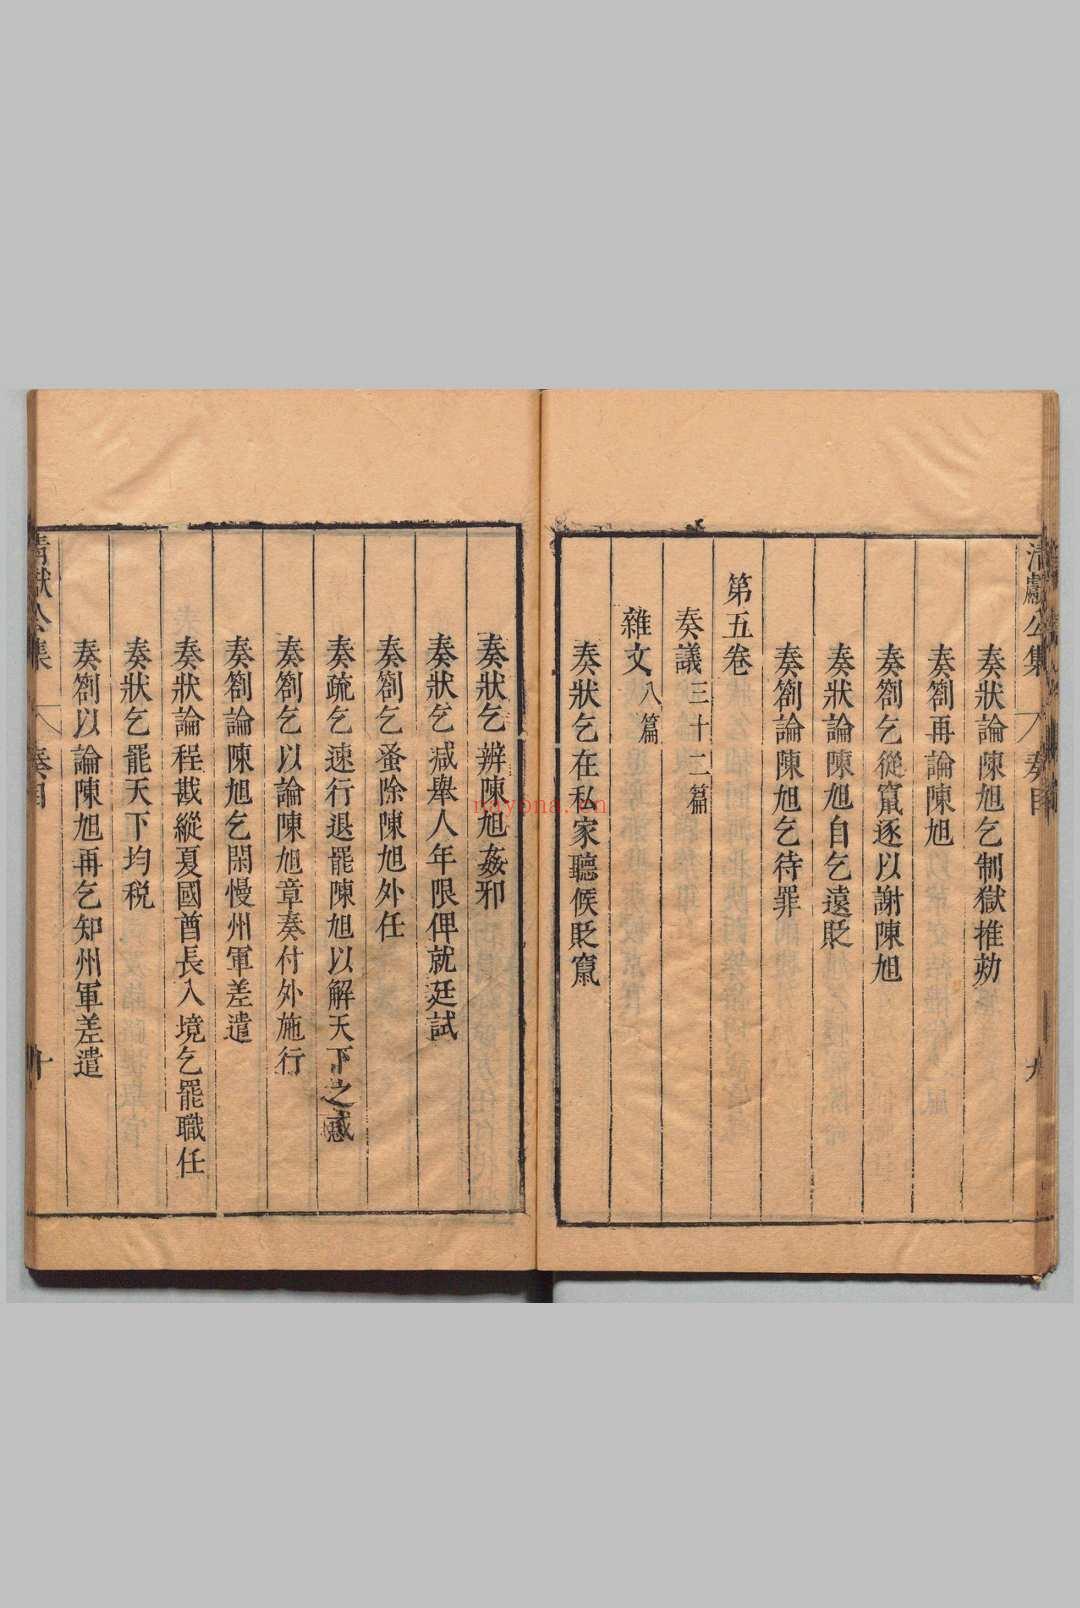 清獻公集 奏目 九
奏狀論陳旭乞制獄推劾
奏劄再論陳旭
奏劄乞從竄逐以謝陳旭
奏狀論陳旭自乞遠貶
奏劄論陳旭乞待罪
第五卷
奏議三十二篇
雜文八篇
奏狀乞在私家聽候貶竄
奏狀乞辨陳旭姦邪
奏狀乞減舉人年限俾就廷試
奏劄乞蚤除陳旭外任
奏疏乞速行退罷陳旭以解天下之惑
奏劄乞以論陳旭章奏付外施行
奏劄論陳旭乞閑慢州軍差遣
奏狀論程戡縱夏國酋長入境乞罷職任
奏狀乞罷天下均税
奏劄以論陳旭再乞知州軍差遣
清獻公集 奏目 十
nayona.cn